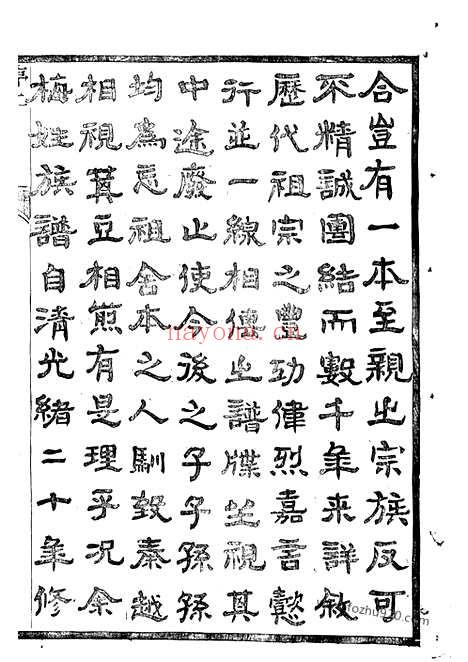 合豈有一本至親之宗族反可
不精誠團結而數千年来詳敘
歷代祖宗之豐功偉烈嘉言懿
行並一線相傳之譜牒坐視其
中途廢止使今後之子子孫孫
均為忘祖舍本之人馴致秦越
相視萁豆相煎有是理乎况余
梅姓族譜自清光緒二十年修
nayona.cn